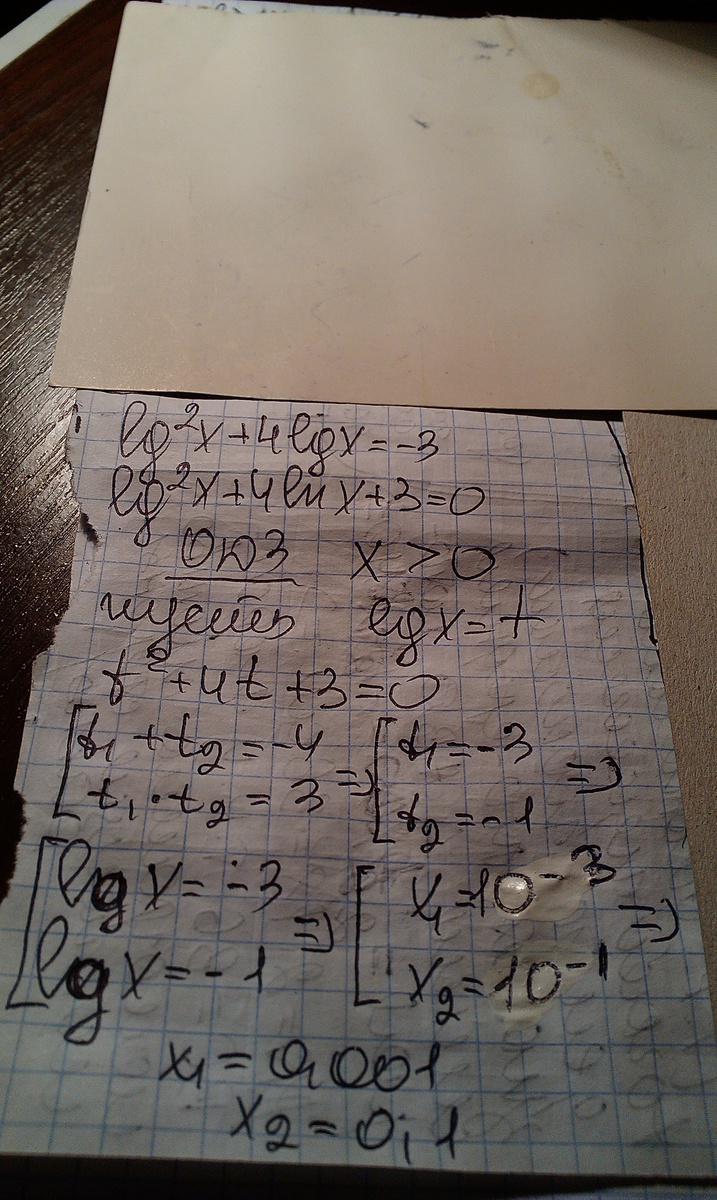 lg²x+4lgx=-3
lg²x+4lnx+3=0
ОДЗ x>0
пусть lgx=t
t²+4t+3=0
[t₁+t₂=-4 [t₁=-3
t₁·t₂=3 => t₂=-1 =>
[lgx=-3 [x₁=10⁻³
lgx=-1 => x₂=10⁻¹ =>
x₁=0,001
x₂=0,1